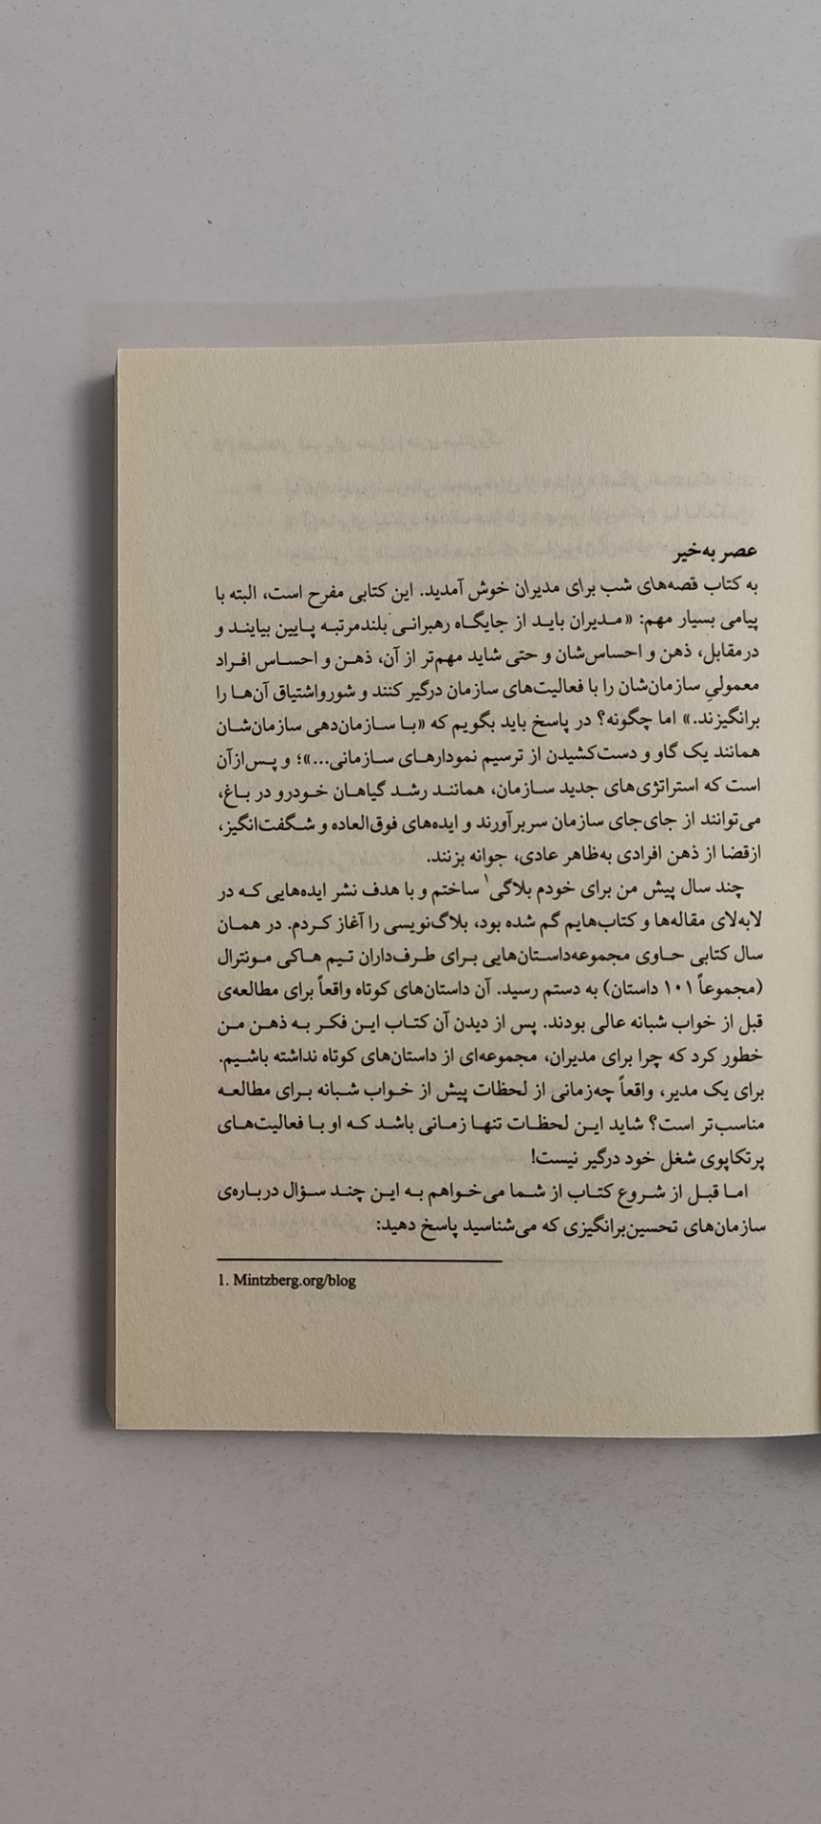 عصر به‌خیر
به کتاب قصه‌های شب برای مدیران خوش آمدید. این کتابی مفرح است، البته با
پیامی بسیار مهم: «مـدیران بایـد از جایگـاه رهبرانـی بلندمرتبـه پـایین بیاینـد و
درمقابل، ذهن و احساس‌شان و حتی شاید مهم‌تر از آن، ذهـن و احسـاس افـراد
معمولیِ سازمان‌شان را با فعالیت‌های سازمان درگیر کنند و شورواشتیاق آن‌هـا را
برانگیزند.» اما چگونه؟ در پاسخ باید بگویم که «بـا سـازمان‌دهی سازمان‌شـان
همانند یک گاو و دست‌کشیدن از ترسیم نمودارهـای سـازمانی...»؛ و پـس‌ازآن
است که استراتژی‌های جدید سـازمان، همانند رشـد گیاهـان خـودرو در بـاغ،
می‌توانند از جای‌جای سازمان سربرآورند و ایده‌های فوق‌العاده و شـگفت‌انگیز،
ازقضا از ذهن افرادی به‌ظاهر عادی، جوانه بزنند.
چند سال پیش من برای خودم بلاگی۱ ساختم و با هدف نشر ایده‌هایی کـه در
لابه‌لای مقاله‌ها و کتاب‌هایم گم شده بود، بلاگ‌نویسی را آغاز کـردم. در همـان
سال کتابی حـاوی مجموعه‌داسـتان‌هایی بـرای طـرف‌داران تـیم هـاکی مـونترال
(مجموعاً ۱۰۱ داستان) به دستم رسید. آن داستان‌های کوتاه واقعاً برای مطالعه‌ی
قبل از خواب شبانه عالی بودند. پس از دیدن آن کتـاب ایـن فکـر بـه ذهـن مـن
خطور کرد که چرا برای مدیران، مجموعه‌ای از داستان‌های کوتاه نداشته باشـیم.
برای یک مدیر، واقعاً چه‌زمانی از لحظات پیش از خـواب شـبانه بـرای مطالعـه
مناسب‌تر است؟ شاید ایـن لحظـات تنهـا زمـانی باشـد کـه او بـا فعالیت‌هـای
پرتکاپوی شغل خود درگیر نیست!
امـا قبـل از شـروع کتـاب از شـما می‌خـواهم بـه ایـن چنـد سـؤال دربـاره‌ی
سازمان‌های تحسین‌برانگیزی که می‌شناسید پاسخ دهید:
1. Mintzberg.org/blog